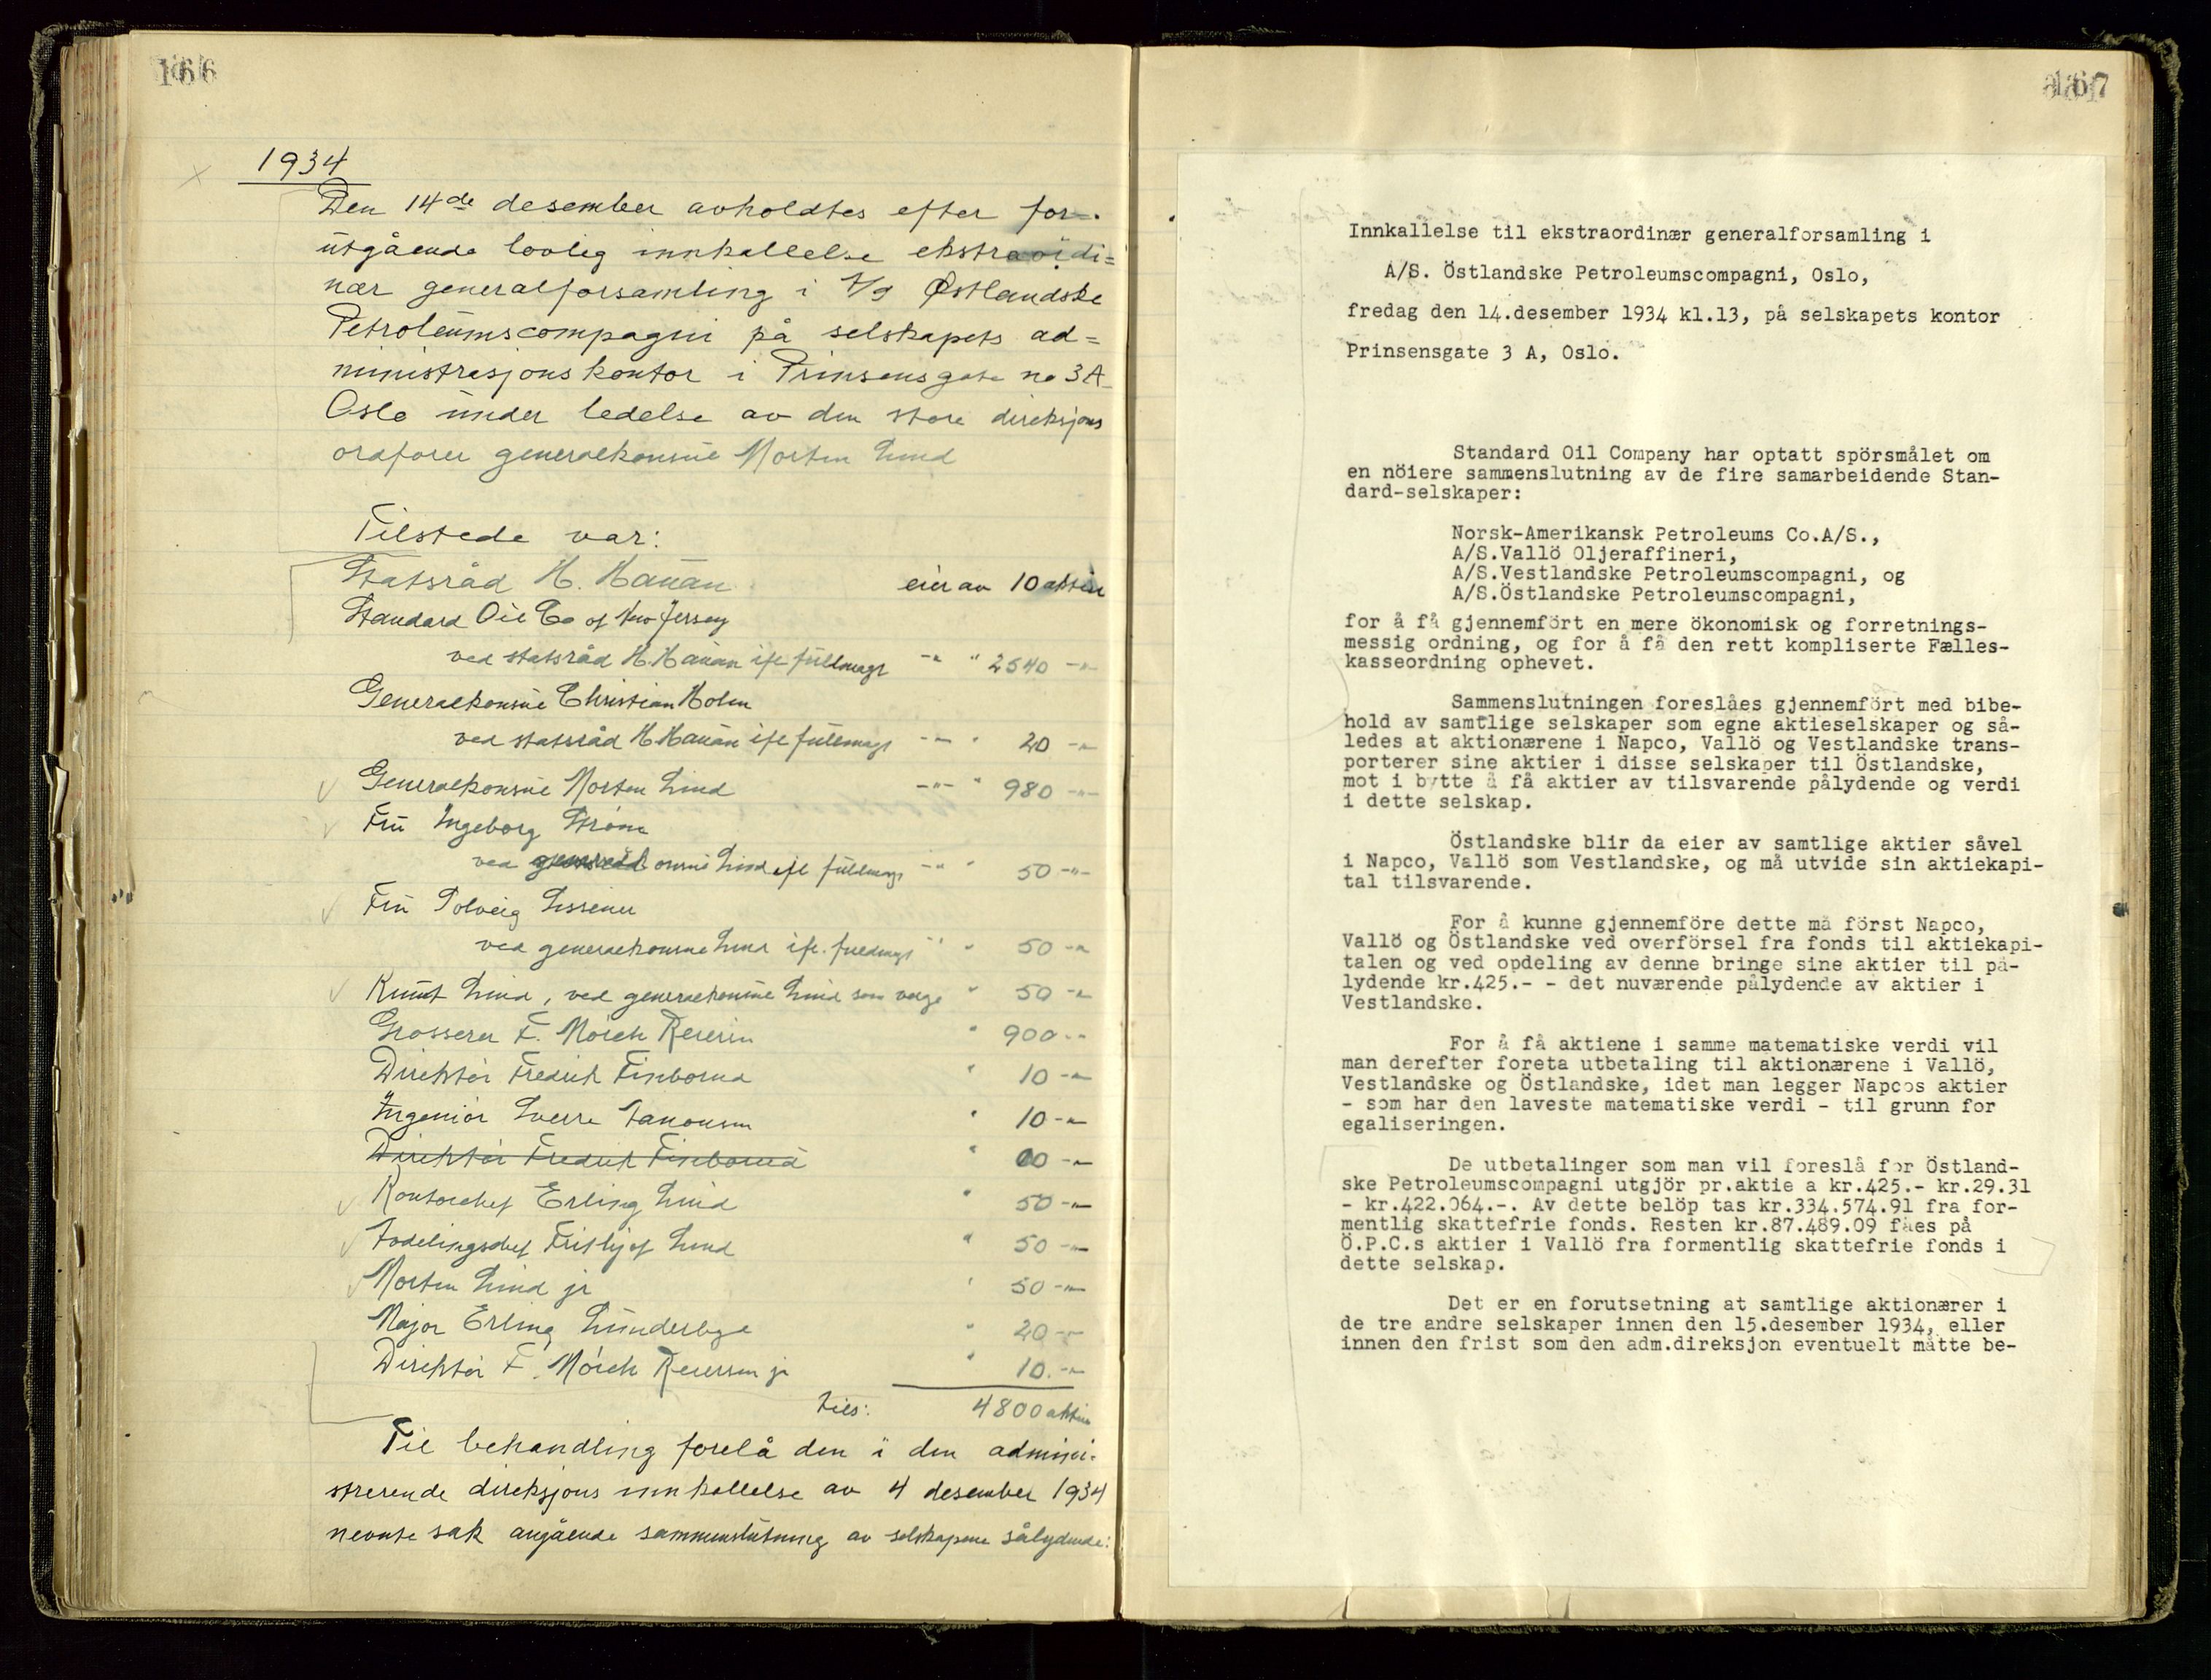 166
1934
Den 14de desember avholdtes efter for-
utgående lovlig innkallelse ekstraordi=
nær generalforsamling i A/S Østlandske
Petroleumscompagni på selskapets ad=
ministrasjonskontor i Prinsensgate no 3A
Oslo under ledelse av den store direksjons
ordfører generalkonsul Morten Lind
Tilstede var:
Statsråd H. Hauan eier av 10 aktier
Standard Oil Co of New Jersey
ved statsråd H. Hauan ifl fullmagt -"- " 2540 -"-
Generalkonsul Christian Holm
ved statsråd H Hauan ifl fullmagt -"- " 20 -"-
Generalkonsul Morten Lind -"- " 980 -"-
Fru Ingeborg Strøm
ved onsul Lind ifl fullmagt -"- " 50 -"-
Fru Solveig
ved generalkonsul Lind ifl. fuldmagt " " 50 -"-
Knut Lind, ved generalkonsul Lind som verge " 50 -"-
Grosserer F. Mörch Reiersen " 900 --
Direktör Fredrik Fineborud " 10 -"-
Ingeniör Sverre " 10 -"-
Direktör Fredrik Fineborud " 00 -"-
Kontorchef Erling Lind " 50 -"-
Avdelingschef Frithjof Lind " 50 -"-
Morten Lind jr " 50 -"-
Major Erling Lunderbye " 20 -"-
Direktör F. Mörch Reiersen jr " 10.-"-
tils: 4800 aktier
Til behandling forelå den i den admini-
strerende direksjons innkallelse av 4 desember 1934
nevnte sak angående sammenslutning av selskapene sålydende:
167
Innkallelse til ekstraordinær generalforsamling i
A/S. Östlandske Petroleumscompagni, Oslo,
fredag den 14.desember 1934 kl.13, på selskapets kontor
Prinsensgate 3 A, Oslo.
Standard Oil Company har optatt spörsmålet om
en nöiere sammenslutning av de fire samarbeidende Stan-
dard-selskaper:
Norsk-Amerikansk Petroleums Co.A/S.,
A/S.Vallö Oljeraffineri,
A/S.Vestlandske Petroleumscompagni, og
A/S.Östlandske Petroleumscompagni,
for å få gjennemfört en mere ökonomisk og forretnings-
messig ordning, og for å få den rett kompliserte Fælles-
kasseordning ophevet.
Sammenslutningen foreslåes gjennemfört med bibe-
hold av samtlige selskaper som egne aktieselskaper og så-
ledes at aktionærene i Napco, Vallö og Vestlandske trans-
porterer sine aktier i disse selskaper til Östlandske,
mot i bytte å få aktier av tilsvarende pålydende og verdi
i dette selskap.
Östlandske blir da eier av samtlige aktier såvel
i Napco, Vallö som Vestlandske, og må utvide sin aktiekapi-
tal tilsvarende.
For å kunne gjennemföre dette må först Napco,
Vallö og Östlandske ved overförsel fra fonds til aktiekapi-
talen og ved opdeling av denne bringe sine aktier til på-
lydende kr.425.- - det nuværende pålydende av aktier i
Vestlandske.
For å få aktiene i samme matematiske verdi vil
man derefter foreta utbetaling til aktionærene i Vallö,
Vestlandske og Östlandske, idet man legger Napcos aktier
- som har den laveste matematiske verdi - til grunn for
egaliseringen.
De utbetalinger som man vil foreslå for Östland-
ske Petroleumscompagni utgjör pr.aktie a kr.425.- kr.29.31
- kr.422.064.-. Av dette belöp tas kr.334.574.91 fra for-
mentlig skattefrie fonds. Resten kr.87.489.09 fåes på
Ö.P.C.s aktier i Vallö fra formentlig skattefrie fonds i
dette selskap.
Det er en forutsetning at samtlige aktionærer i
de tre andre selskaper innen den 15.desember 1934, eller
innen den frist som den adm.direksjon eventuelt måtte be-